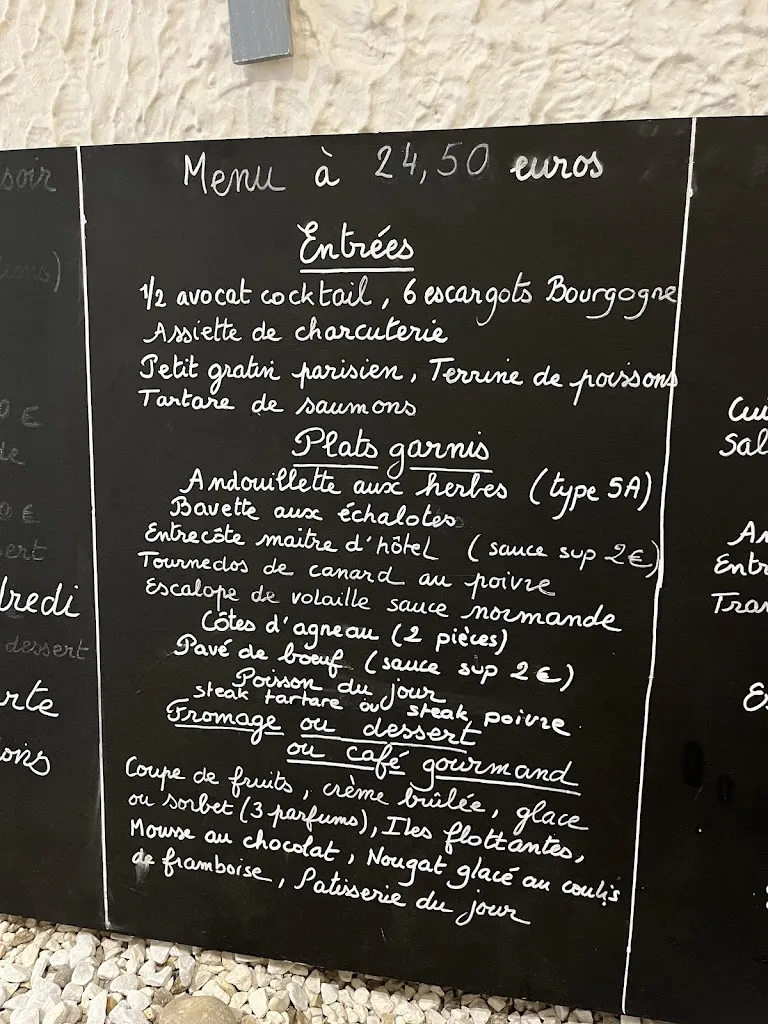 soir
Menu à 24,50 euros
Entrées
1/2 avocat cocktail, 6 escargots Bourgogne
Assiette de charcuterie
Petit gratin parisien, Terrine de poissons
Tartare de saumons
Plats garnis
Andouillette aux herbes (type 5A)
Bavette aux échalotes
Entrecôte maitre d'hôtel (sauce sup 2€)
Tournedos de canard au poivre
Escalope de volaille sauce normande
Côtes d'agneau (2 pièces)
Pavé de bœuf (sauce sup 2€)
Poisson du jour
steak tartare ou steak poivre
Fromage ou dessert
ou café gourmand
Coupe de fruits, crème brûlée, glace
ou sorbet (3 parfums), Iles flottantes,
Mousse au chocolat, Nougat glacé au coulis
de framboise, Patisserie du jour
dessert